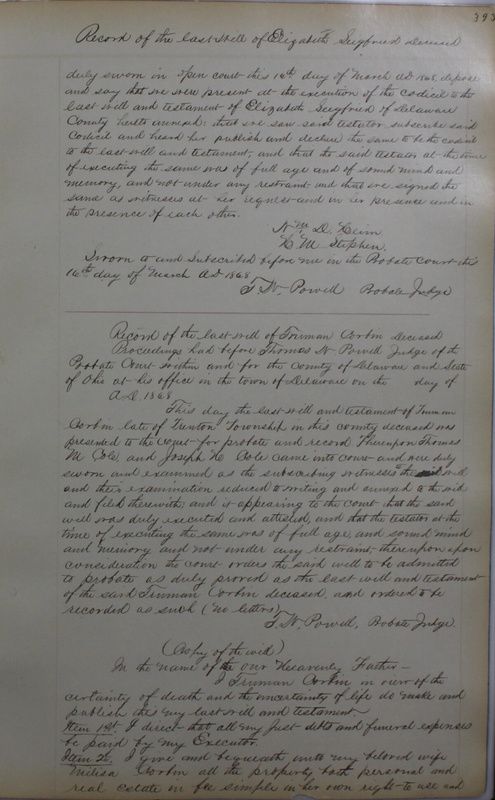 393
Record of the last will of Elizabeth Siegfried deceased
duly sworn in open court this 16th day of March AD 1868, depose
and say that we were present at the execution of the codicil to the
last will and testament of Elizabeth Siegfried of Delaware
County hereto annexed: that we saw said testator subscribe said
Codicil and heard her publish and declare the same to be the codicil
to the last will and testament, and that the said testator at the time
of executing the same was of full age and of sound mind and
memory, and not under any restraint and that we signed the
same as witnesses at her request and in her presence and in
the presence of each other.
Wm D. Heim
H. M. Stephen.
Sworn to and Subscribed before me in the Probate Court this
16th day of March AD 1868
T. W. Powell Probate Judge
Record of the last will of Truman Corbin deceased
Proceedings had before Thomas W. Powell Judge of the
Probate Court within and for the County of Delaware and State
of Ohio at his office in the town of Delaware on the day of
AD 1868
This day the last will and testament of Truman
Corbin late of Trenton Township in this county deceased was
presented to the court for probate and record. Thereupon Thomas
M. Cole, and Joseph H. Cole came into court and were duly
sworn and examined as the subscribing witnesses to the will
and their examination reduced to writing and annexed to the will
and filed therewith, and it appearing to the court that the said
will was duly executed and attested, and that the testator at the
time of executing the same was of full age, and sound mind
and memory and not under any restraint, thereupon upon
consideration the court orders the said will to be admitted
to probate as duly proved as the last will and testament
of the said Truman Corbin deceased, and ordered to be
recorded as such (no letters)
T. W. Powell, Probate Judge
(Copy of the will)
In the name of the our Heavenly Father—
I Truman Corbin in view of the
certainty of death and the uncertainty of life do make and
publish this my last will and testament.
Item 1st. I direct that all my just debts and funeral expenses
be paid by my Executor.
Item 2d. I give and bequeath unto my beloved wife
Corbin all the property both personal and
real estate in fee simple in her own right to use and